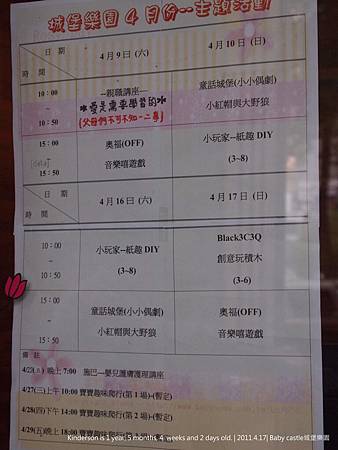 城堡樂園 4 月份--主題活動
日 期
時 間
4 月 9 日 (六)
4 月 10 日 (日)
10：00
~
10：50
--親職講座--
*愛是需要學習的*
(父母們不可不知-二專)
童話城堡(小小偶劇)
小紅帽與大野狼
15：00
~
15：50
奧福(OFF)
音樂嘻遊戲
小玩家--紙趣 DIY
(3~8)
日 期
時 間
4 月 16 日 (六)
4 月 17 日 (日)
10：00
~
10：50
小玩家--紙趣 DIY
(3~8)
Black3C3Q
創意玩積木
(3-6)
15：00
~
15：50
童話城堡(小小偶劇)
小紅帽與大野狼
奧福(OFF)
音樂嘻遊戲
備 註
晚上 7:00 施巴---嬰兒護膚護理講座
4/27(三)上午 10:00 寶寶趣味爬行(第 1 場)-(暫定)
4/28(四)下午 14:00 寶寶趣味爬行(第 2 場)-(暫定)
4/29(五)晚上 18:00 寶寶趣味爬行(第 3 場)-(暫定)
Kinderson is 1 year, 5 months, 4 weeks and 2 days old. | 2011.4.17| Baby castle城堡樂園